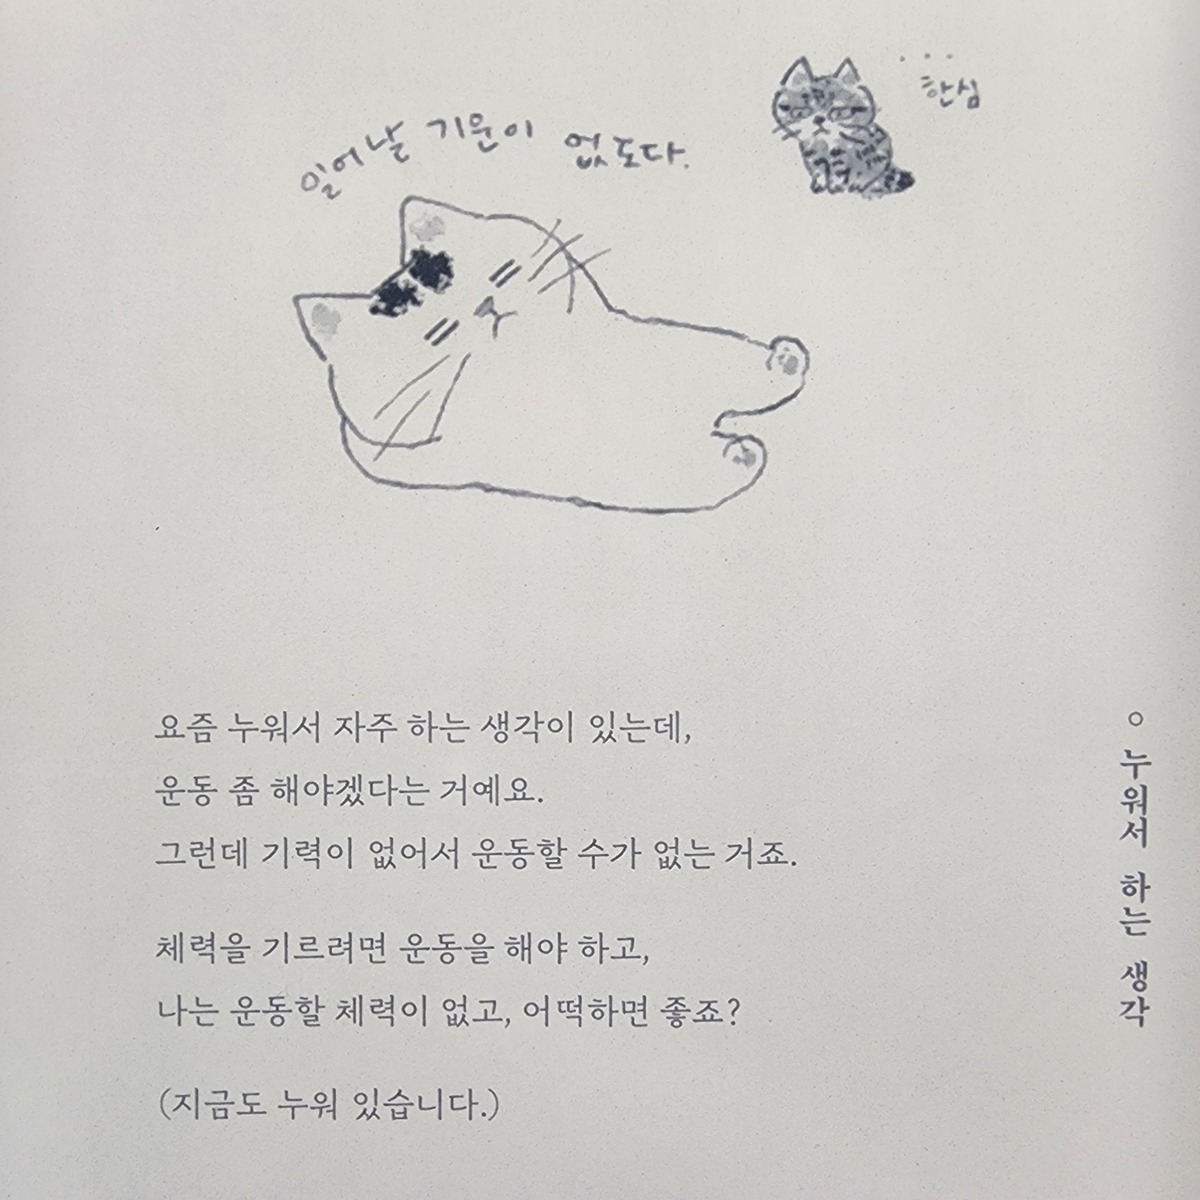 ...
한심
일어날 기운이 없도다.
요즘 누워서 자주 하는 생각이 있는데,
운동 좀 해야겠다는 거예요.
그런데 기력이 없어서 운동할 수가 없는 거죠.
체력을 기르려면 운동을 해야 하고,
나는 운동할 체력이 없고, 어떡하면 좋죠?
(지금도 누워 있습니다.)
○ 누워서 하는 생각